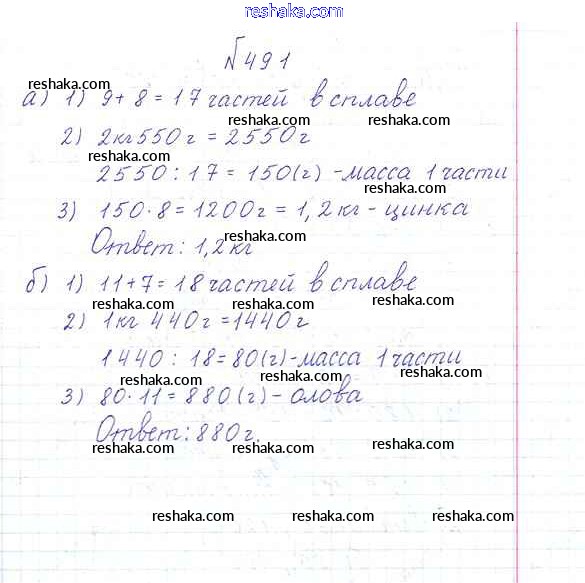 www.reshaka.com
reshaka.com
№ 491
reshaka.com
а) 1) 9 + 8 = 17 частей в сплаве
reshaka.com reshaka.com
2) 2 кг 550 г = 2550 г
reshaka.com
2550 : 17 = 150 (г) - масса 1 части
reshaka.com
3) 150 · 8 = 1200 г = 1,2 кг - цинка
reshaka.com
Ответ: 1,2 кг
б) 1) 11 + 7 = 18 частей в сплаве
reshaka.com reshaka.com
2) 1 кг 440 г = 1440 г
1440 : 18 = 80 (г) - масса 1 части
reshaka.com reshaka.com reshaka.com
3) 80 · 11 = 880 (г) - олова
Ответ: 880 г.
reshaka.com reshaka.com reshaka.com
reshaka.com reshaka.com reshaka.com